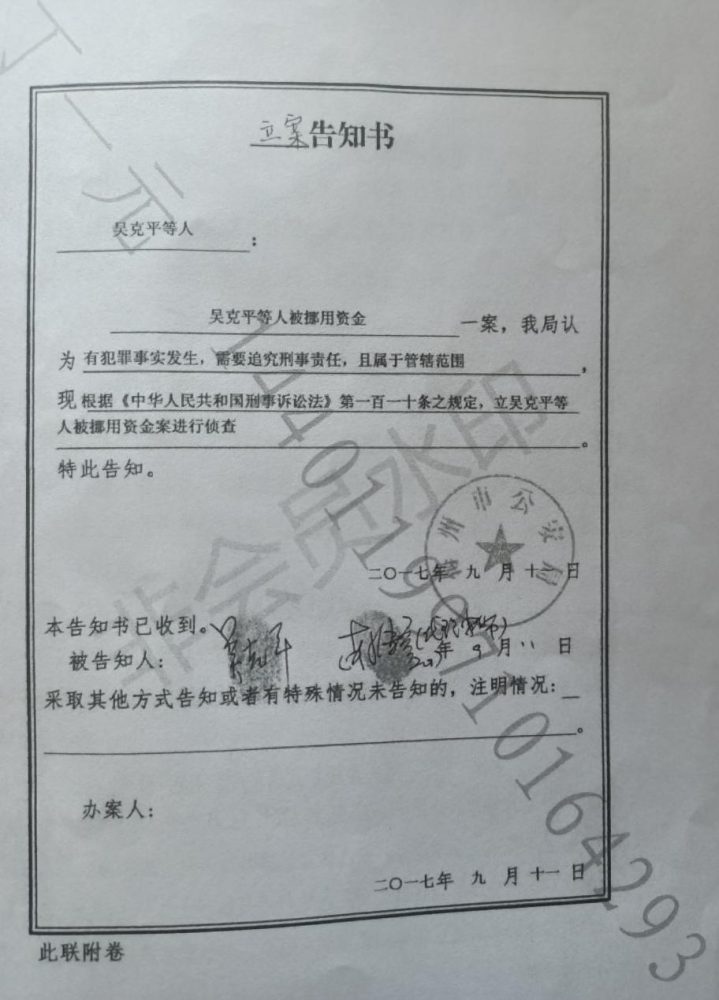 立案告知书
吴克平等人:
吴克平等人被挪用资金一案，我局认
为有犯罪事实发生，需要追究刑事责任，且属于管辖范围，
现根据《中华人民共和国刑事诉讼法》第一百一十条之规定，立吴克平等
人被挪用资金案进行侦查。
特此告知。
州市公安局
二〇一七年 九 月 十一 日
本告知书已收到。
被告知人： 吴克平 年 9 月 11 日
采取其他方式告知或者有特殊情况未告知的，注明情况：
。
办案人：
二〇一七年 九 月 十一 日
此联附卷
一元
非会员水印